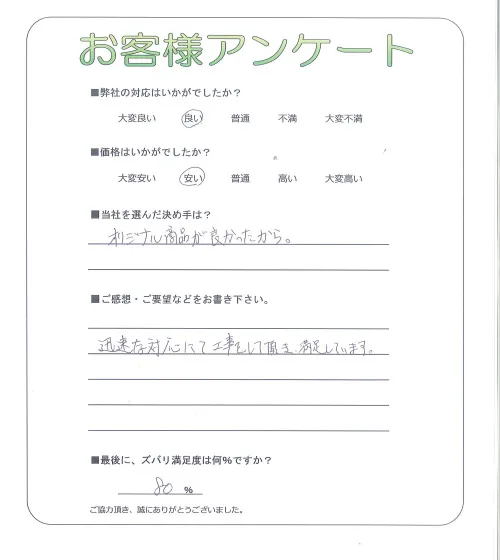 お客様アンケート
■弊社の対応はいかがでしたか？
大変良い 良い 普通 不満 大変不満
■価格はいかがでしたか？
大変安い 安い 普通 高い 大変高い
■当社を選んだ決め手は？
オリジナル商品が良かったから。
■ご感想・ご要望などをお書き下さい。
迅速な対応にて工事をして頂き、満足しています。
■最後に、ズバリ満足度は何%ですか？
80 %
ご協力頂き、誠にありがとうございました。